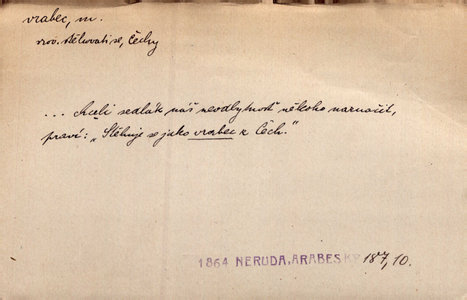 vrabec, m.
srov. stěhovati se, Čechy
... chceli sedlák náš neodbytnost někoho naznačit,
praví: „Stěhuje se jako vrabec z Čech."
1864 NERUDA, ARABESKY 187,10.